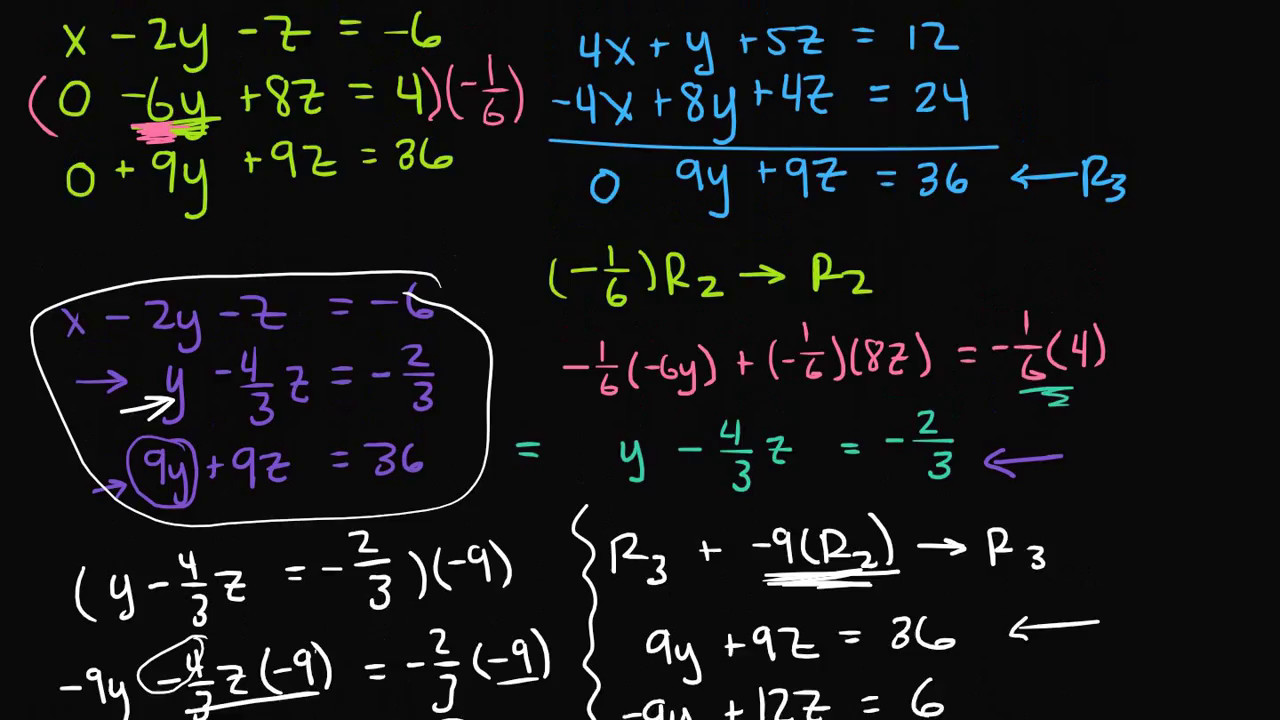 x - 2y - z = -6
(0 -6y + 8z = 4)(-1/6)
0 + 9y + 9z = 36
4x + y + 5z = 12
-4x + 8y + 4z = 24
0 9y + 9z = 36 ← R₃
(-1/6)R₂ → R₂
-1/6(-6y) + (-1/6)(8z) = -1/6(4)
= y - 4/3 z = -2/3 ←
x - 2y - z = -6
→ y - 4/3 z = -2/3
→ 9y + 9z = 36
(y - 4/3 z = -2/3)(-9)
-9y - 4/3 z(-9) = -2/3(-9)
R₃ + -9(R₂) → R₃
9y + 9z = 36 ←
-9y + 12z = 6